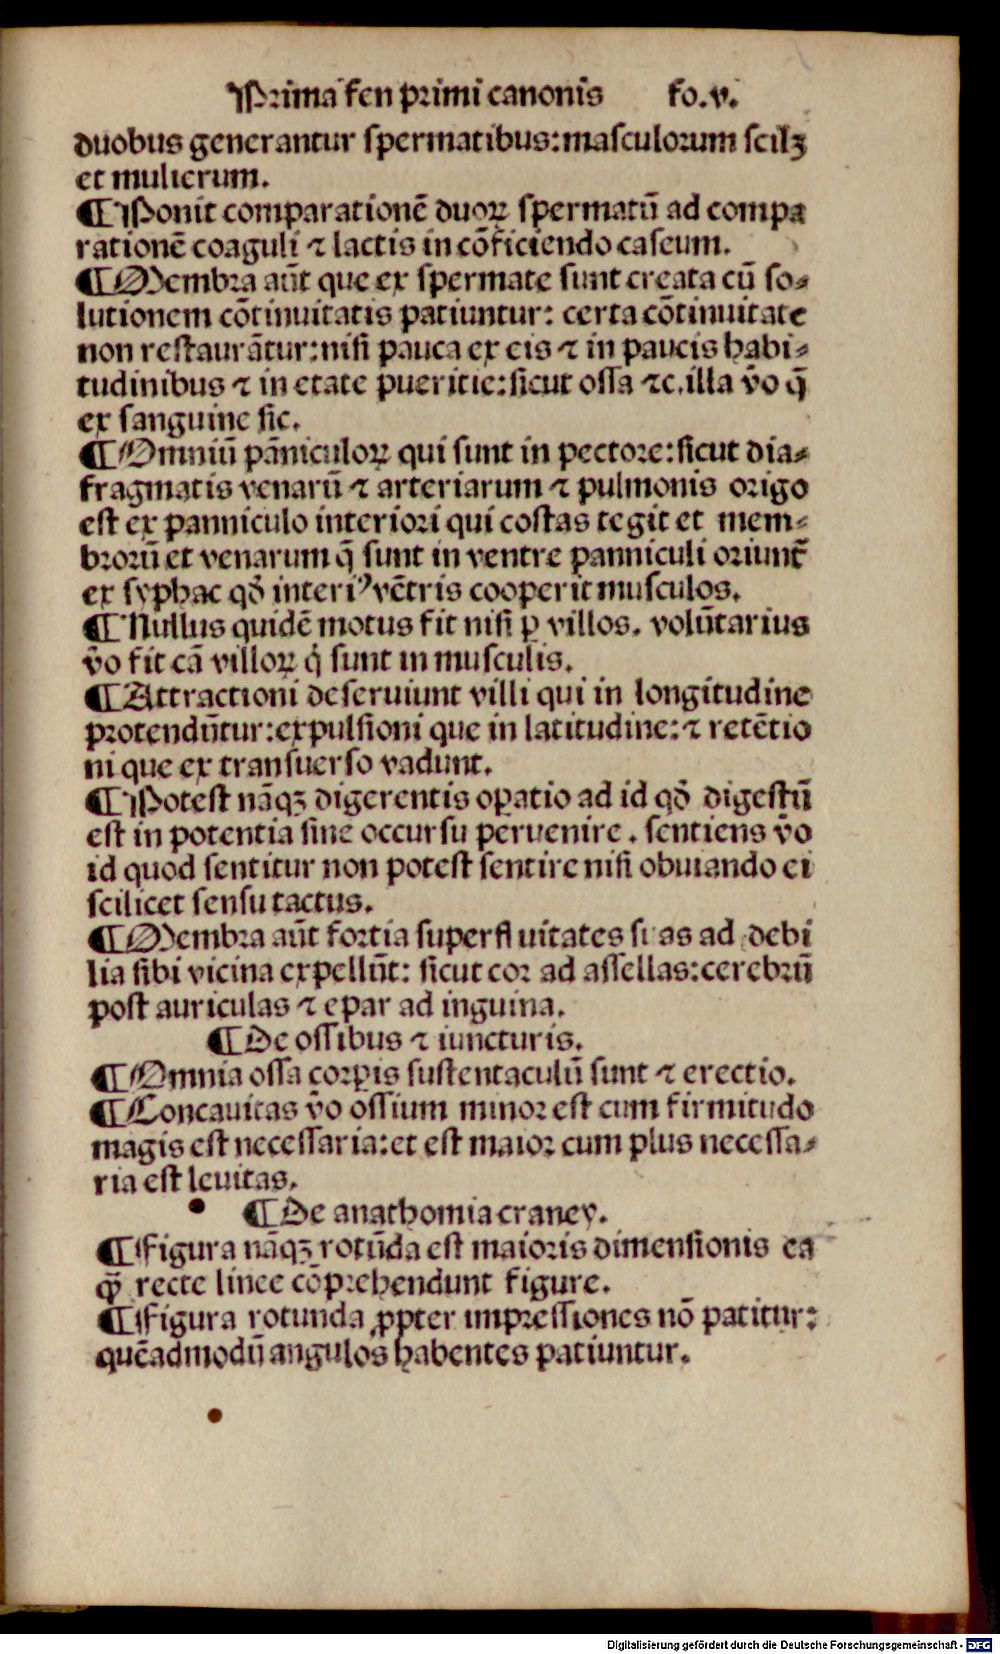 Prima fen primi canonis fo.v.
duobus generantur spermatibus:masculorum scilꝫ
et mulierum.
¶Ponit comparationē duoꝝ spermatū ad compa
rationē coaguli ⁊ lactis in cōficiendo caseum.
¶Membra aūt que ex spermate sunt creata cū so⸗
lutionem cōtinuitatis patiuntur: certa cōtinuitate
non restaurātur:nisi pauca ex eis ⁊ in paucis habi⸗
tudinibus ⁊ in etate pueritie:sicut ossa ⁊c.illa v̄o q̄
ex sanguine sic.
¶Omniū pāniculoꝝ qui sunt in pectore:sicut dia⸗
fragmatis venarū ⁊ arteriarum ⁊ pulmonis origo
est ex panniculo interiori qui costas tegit et mem⸗
brorū et venarum q̄ sunt in ventre panniculi oriunt̄
ex syphac qđ interiꝰ vētris cooperit musculos.
¶Nullus quidē motus fit nisi ꝑ villos. volūtarius
v̄o fit cā villoꝝ q̇ sunt in musculis.
¶Attractioni deseruiunt villi qui in longitudine
protendūtur:expulsioni que in latitudine:⁊ retētio
ni que ex transuerso vadunt.
¶Potest nāqꝫ digerentis oꝑatio ad id qđ digestū
est in potentia sine occursu peruenire. sentiens v̄o
id quod sentitur non potest sentire nisi obuiando ei
scilicet sensu tactus.
¶Membra aūt fortia superfluitates suas ad debi
lia sibi vicina expellūt: sicut cor ad assellas:cerebrū
post auriculas ⁊ epar ad inguina.
¶De ossibus ⁊ iuncturis.
¶Omnia ossa corꝑis sustentaculū sunt ⁊ erectio.
¶Concauitas v̄o ossium minor est cum firmitudo
magis est necessaria:et est maior cum plus necessa⸗
ria est leuitas.
¶De anathomia craney.
¶Figura nāqꝫ rotūda est maioris dimensionis ea
q̄ recte linee cōprehendunt figure.
¶Figura rotunda ꝓpter impressiones nō patitur:
quēadmodū angulos habentes patiuntur.
Digitalisierung gefördert durch die Deutsche Forschungsgemeinschaft - DFG